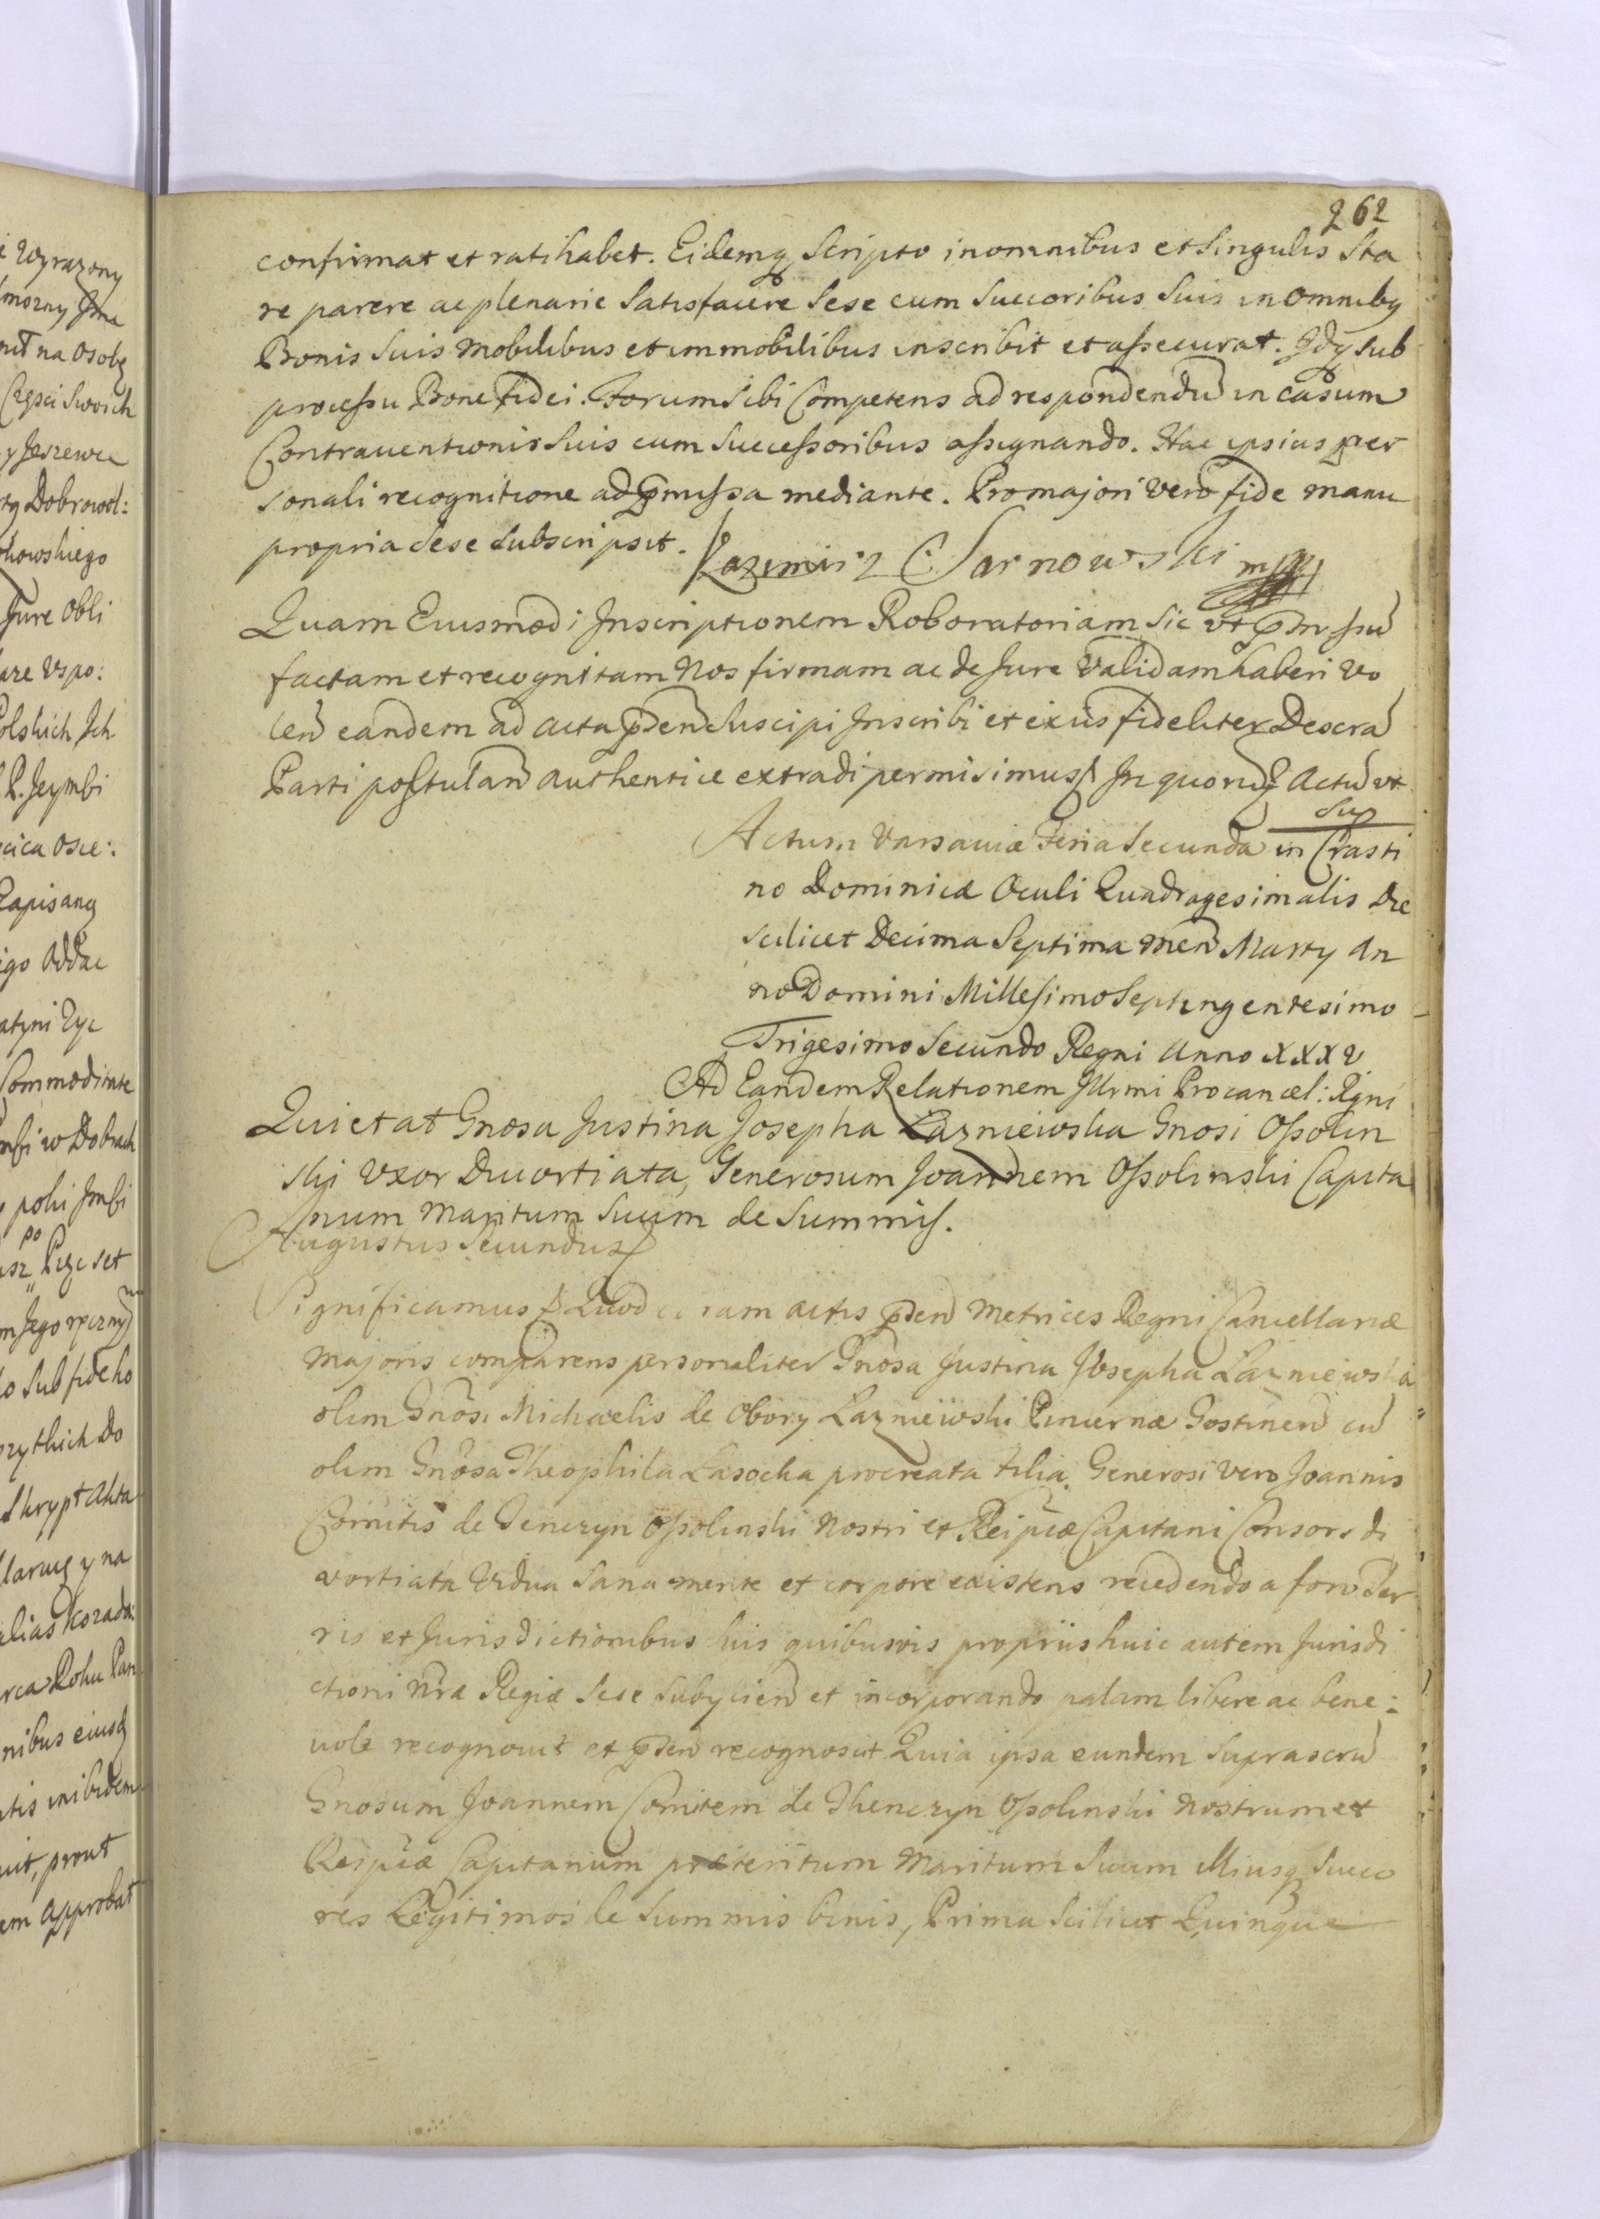 262
confirmat et ratihabet. Eidemq Scripto in omnibus et Singulis Sta
re parere ac plenarie Satisfacere Sese cum Succoribus Suis in omniby
Bonis Suis mobilibus et immobilibus inscribit et assecurat. Idq Sub
processu Bone fidei. Forum Sibi Competens ad respondendu in casum
Contraventionis Suis cum Successoribus assignando. Hac ipsius per
sonali recognitione ad pmissa mediante. Pro majori vero fide manu
propria Sese Subscripsit. Kazimirz Czarnowski mp
Quam Eiusmodi Inscriptionem Roboratoriam Sic ut pmissu
factam et recognitam Nos firmam ac de Jure validam haberi vo
len eandem ad acta pden Suscipi Inscribi et exiis fideliter Descra
Parti postulan authentice extradi permisimus In quoru Actu ut
Sup
Actum Varsaviæ Feria Secunda in Crasti
no Dominicæ Oculi Quadragesimalis Die
Scilicet Decima Septima men Marty An
no Domini Millesimo Septingentesimo
Trigesimo Secundo Regni Anno XXXV
Ad Eandem Relationem Illrmi Procancel: Rgni
Quietat Gnosa Justina Josepha Lazniewska Gnosi Ossolin
ski Uxor Divortiata, Generosum Joannem Ossolinski Capita
num Maritum Suum de Summis.
Augustus Secundus
Significamus Quod coram actis pden Metrices Regni Cancellariæ
Majoris comparens personaliter Gnosa Justina Josepha Lazniewska
olim Gnosi Michaelis de Obory Lazniewski Pincernæ Gostinen cu
olim Gnosa Theophila Lasocka procreata filia. Generosi vero Joannis
Comitis de Tenczyn Ossolinski Nostri et Reipcæ Capitani Consors di
vortiata Vidua Sana mente et corpore existens recedendo a foro Ter
ris et Jurisdictionibus Suis quibusvis propriis huic autem Jurisdi
ctioni Nræ Regiæ Sese Subyicien et incorporando palam libere ac bene:
vole recognovit et pden recognoscit Quia ipsa eundem Suprascru
Gnosum Joannem Comitem de Thenczyn Ossolinski Nostrum et
Reipcæ Capitanum præteritum Maritum Suum Illiusq Succo
res Legitimos de Summis binis, Prima Scilicet Quinque